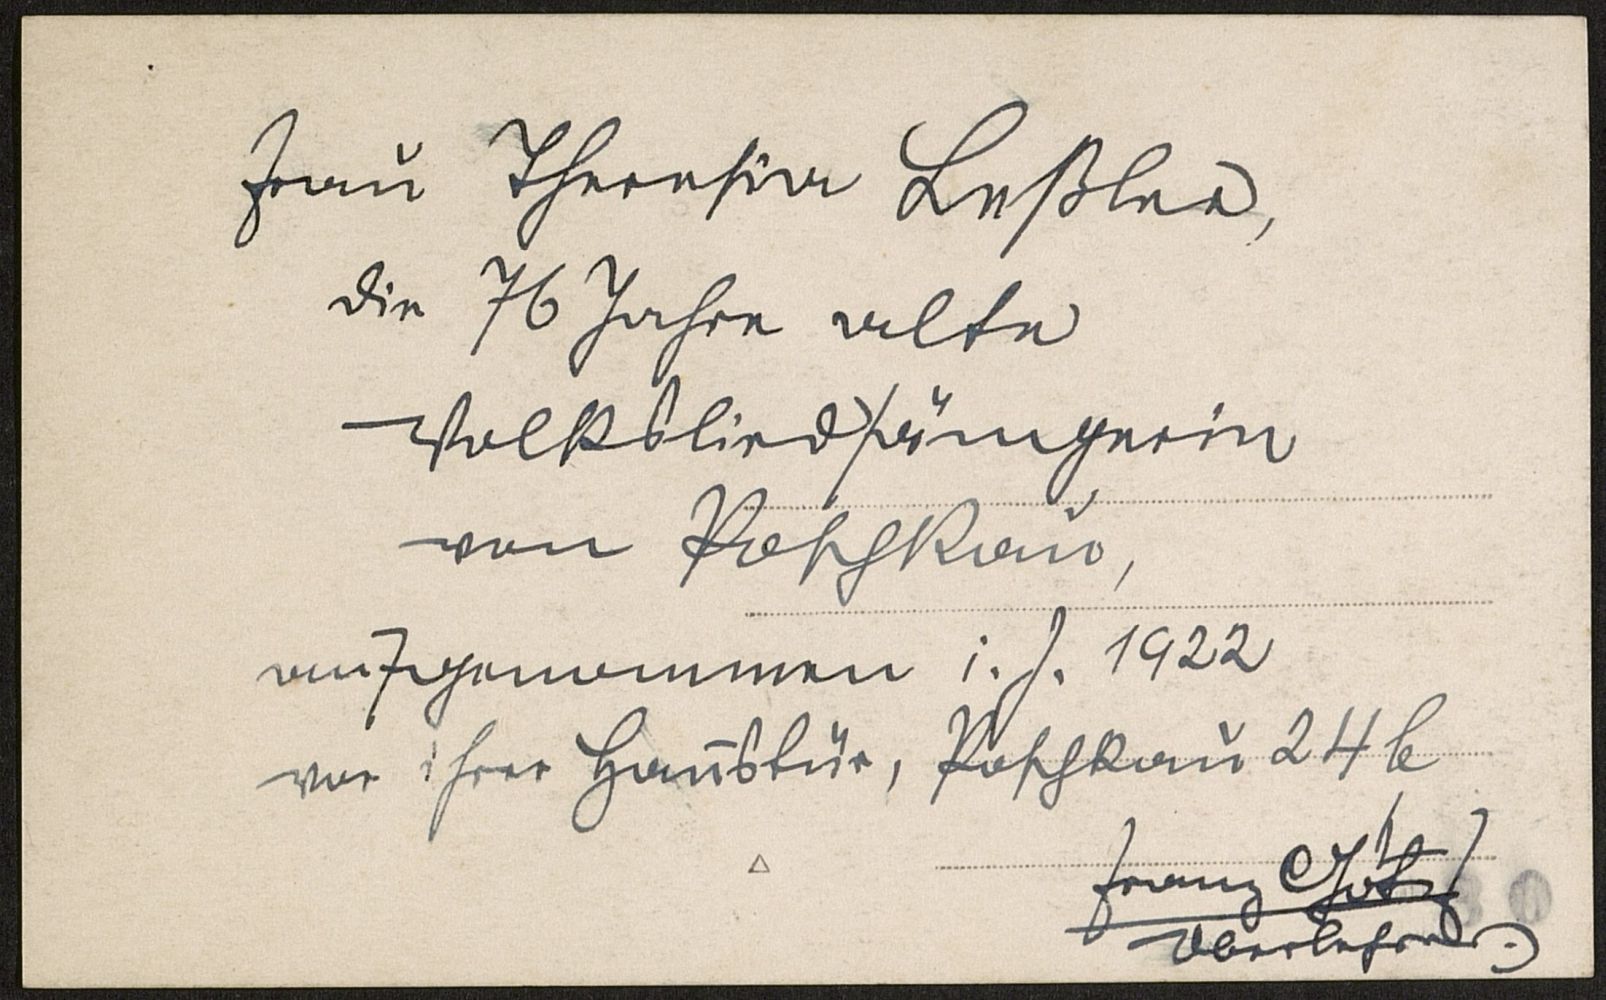 Frau Theresia Leßler,
die 76 Jahre alte
Volksliedsängerin
von Poschkau,
aufgenommen i. J. 1922
vor ihrer Haustür, Poschkau 24 b
Franz Götz
Oberlehrer